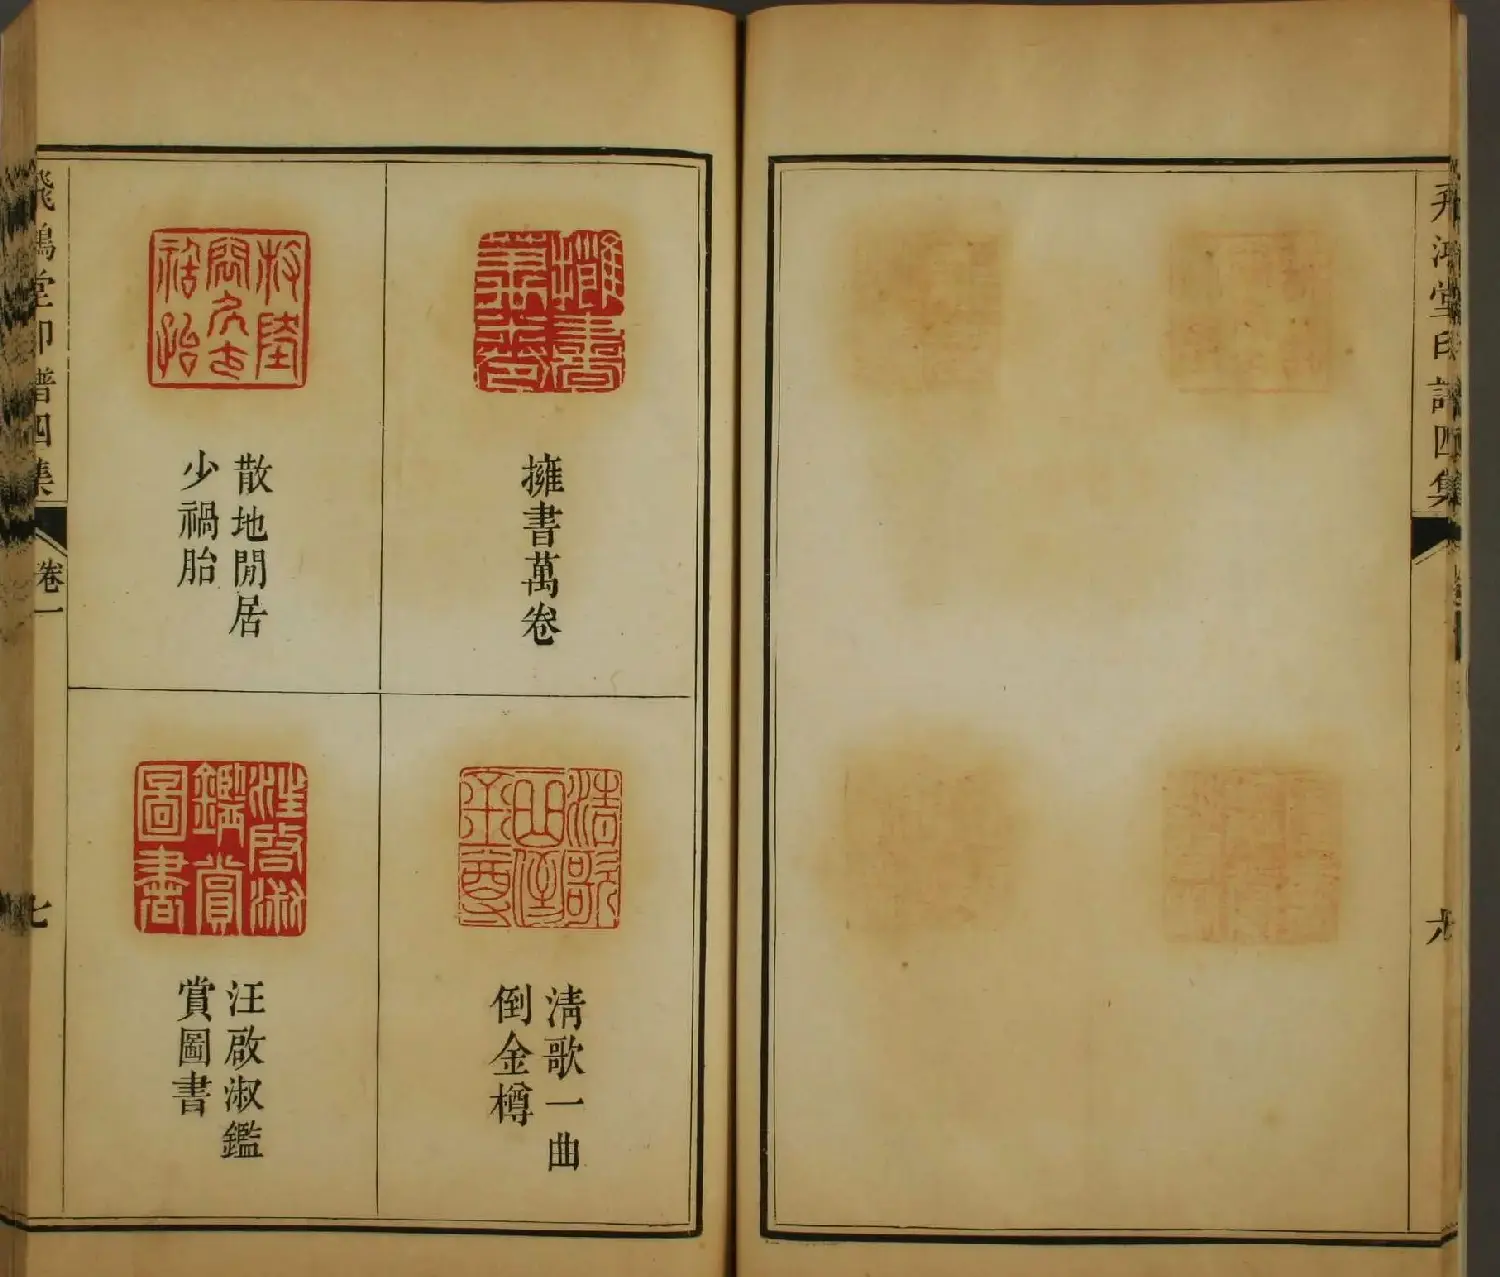 飛鴻堂印譜四集
擁書萬卷
散地閒居
少禍胎
清歌一曲
倒金樽
汪啟淑鑑
賞圖書
汪啟淑鑑賞圖書
飛鴻堂印譜四集
卷一
七